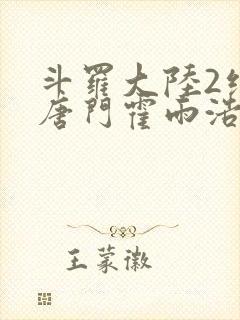 斗羅大陸2
唐門霍雨浩
王蒙徽